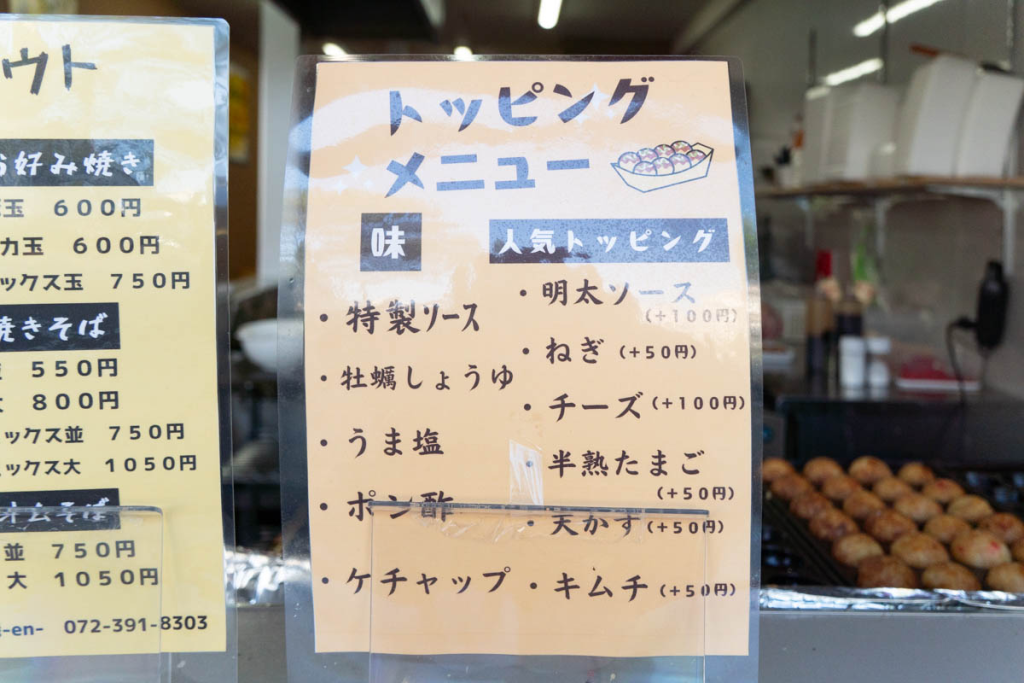 ウト
お好み焼き
玉 600円
カ玉 600円
ックス玉 750円
焼きそば
550円
大 800円
ックス並 750円
ミックス大 1050円
オムそば
並 750円
大 1050円
-en- 072-391-8303
トッピング
メニュー
味
・特製ソース
・牡蠣しょうゆ
・うま塩
・ポン酢
・ケチャップ
人気トッピング
・明太ソース
(+100円)
・ねぎ(+50円)
・チーズ(+100円)
・半熟たまご
(+50円)
・天かす(+50円)
・キムチ(+50円)